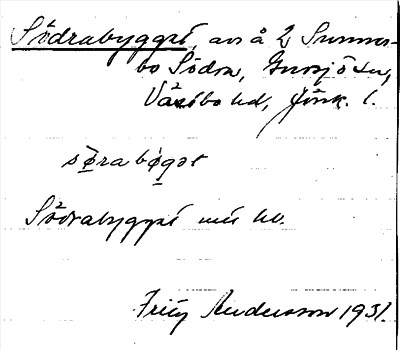 Södrabygget, avs å 2 Sunner-
bo Södra, Gnosjö sn,
Västbo hd, Jönk. l.
sørabøgət
Södrabygget
Fritz Andersson 1931.